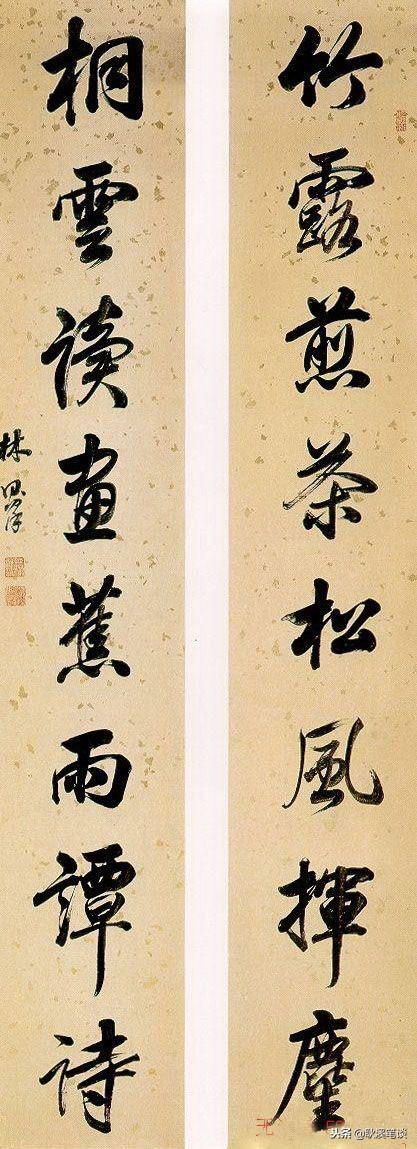 竹露煎茶松風揮麈
桐雲讀畫蕉雨譚詩
林則徐
头条 @耿溪笔谈